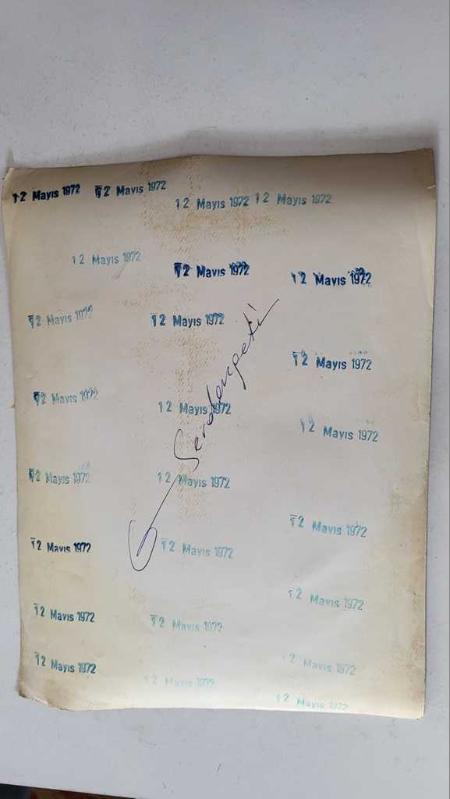 12 Mayıs 1972 12 Mayıs 1972 12 Mayıs 1972 12 Mayıs 1972
12 Mayıs 1972 12 Mayıs 1972 12 Mayıs 1972
12 Mayıs 1972 12 Mayıs 1972
12 Mayıs 1972
12 Mayıs 1972 12 Mayıs 1972
12 Mayıs 1972
12 Mayıs 1972 12 Mayıs 1972
12 Mayıs 1972
12 Mayıs 1972 12 Mayıs 1972
12 Mayıs 1972
12 Mayıs 1972 12 Mayıs 1972
12 Mayıs 1972 12 Mayıs 1972
12 Mayıs 1972
12 Mayıs 1972